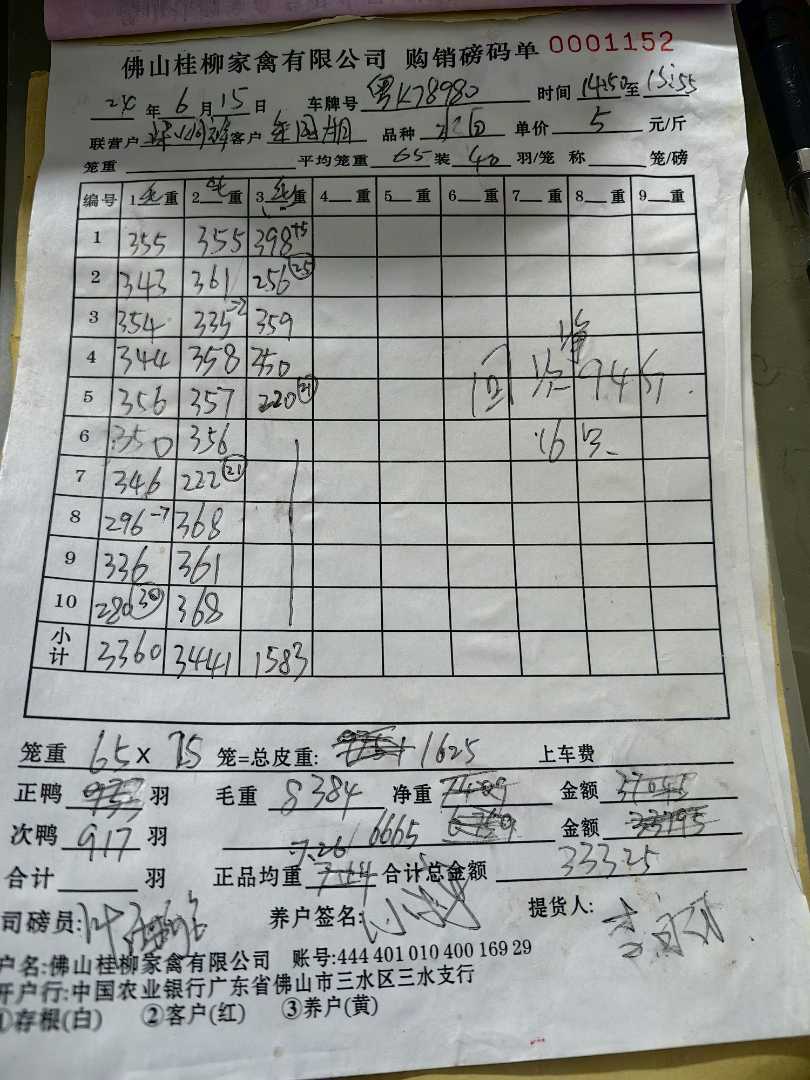 佛山桂柳家禽有限公司 购销磅码单 0001152
24 年 6 月 15 日 车牌号 粤K78980 时间 14:50 至 15:55
联营户 客户 品种 单价 5 元/斤
笼重 平均笼重 65 装 40 羽/笼 称 笼/磅
编号 1 毛 重 2 毛 重 3 毛 重 4 重 5 重 6 重 7 重 8 重 9 重
1 355 355 398 +5
2 343 361 256 (25)
3 354 335 -2 359
4 344 358 350
5 356 357 220 (21) 94斤
6 350 356
7 346 222 (21)
8 296 -7 368
9 336 361
10 280 (30) 368
小计 3360 3441 1583
笼重 65 X 25 笼=总皮重: 1625 上车费
正鸭 羽 毛重 8384 净重 金额
次鸭 917 羽 7.26 6665 金额
合计 羽 正品均重 合计总金额 33325
司磅员: 养户签名: 提货人:
户名:佛山桂柳家禽有限公司 账号:444 401 010 400 169 29
开户行:中国农业银行广东省佛山市三水区三水支行
①存根(白) ②客户(红) ③养户(黄)